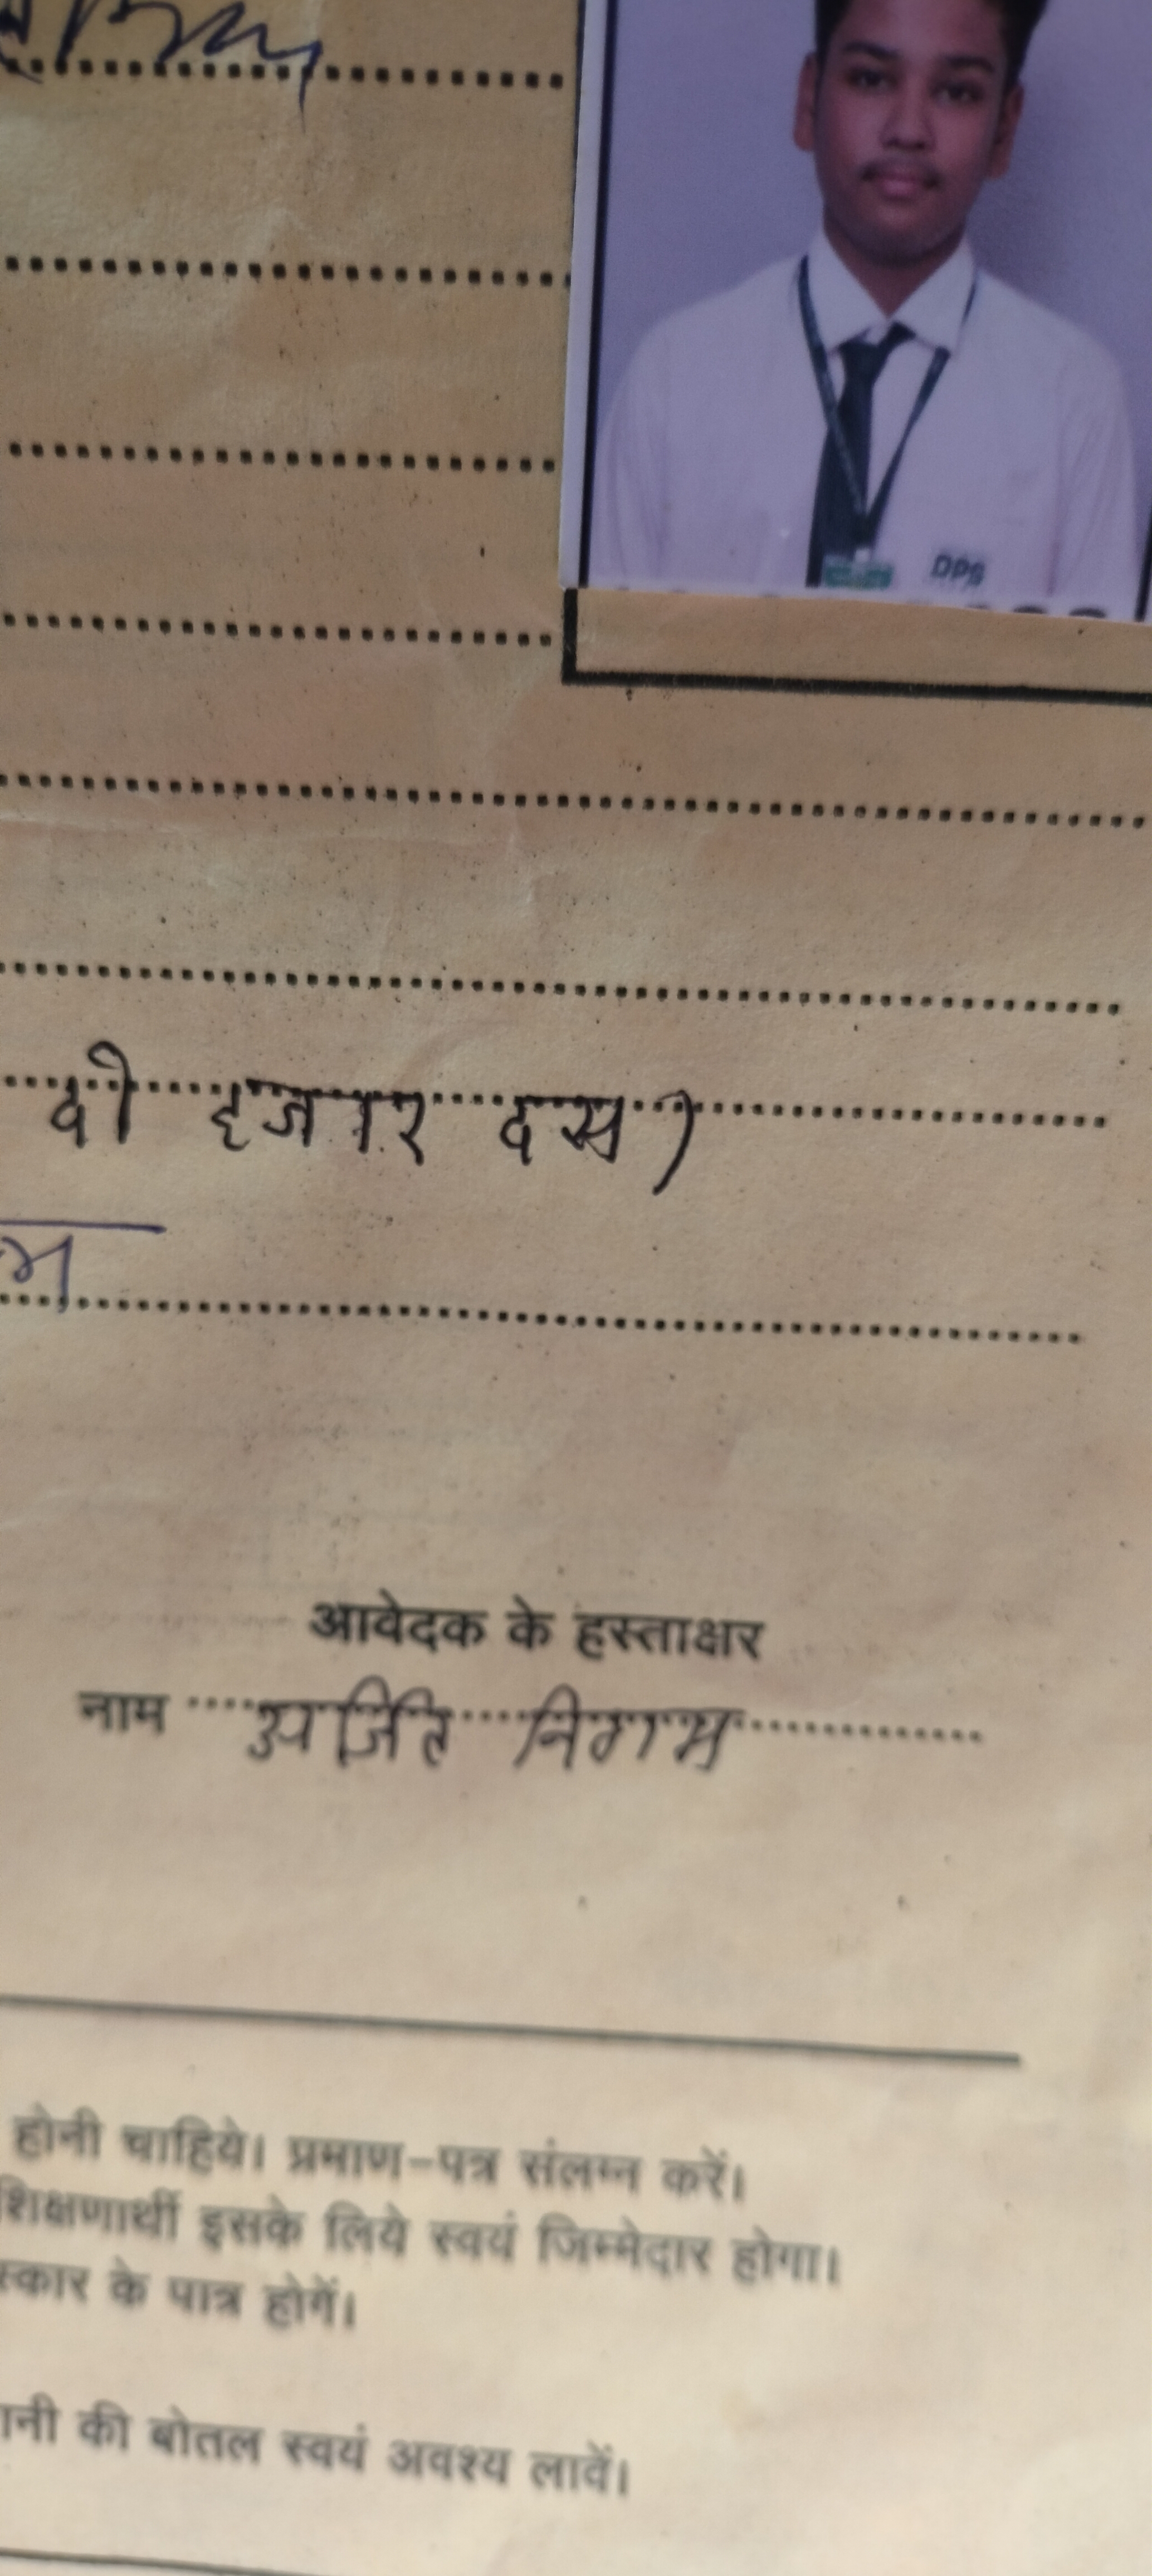 DPS
दो हजार दस)
म
आवेदक के हस्ताक्षर
नाम अर्जित निगम
होनी चाहिये। प्रमाण-पत्र संलग्न करें।
शिक्षणार्थी इसके लिये स्वयं जिम्मेदार होगा।
स्कार के पात्र होगें।
ानी की बोतल स्वयं अवश्य लावें।